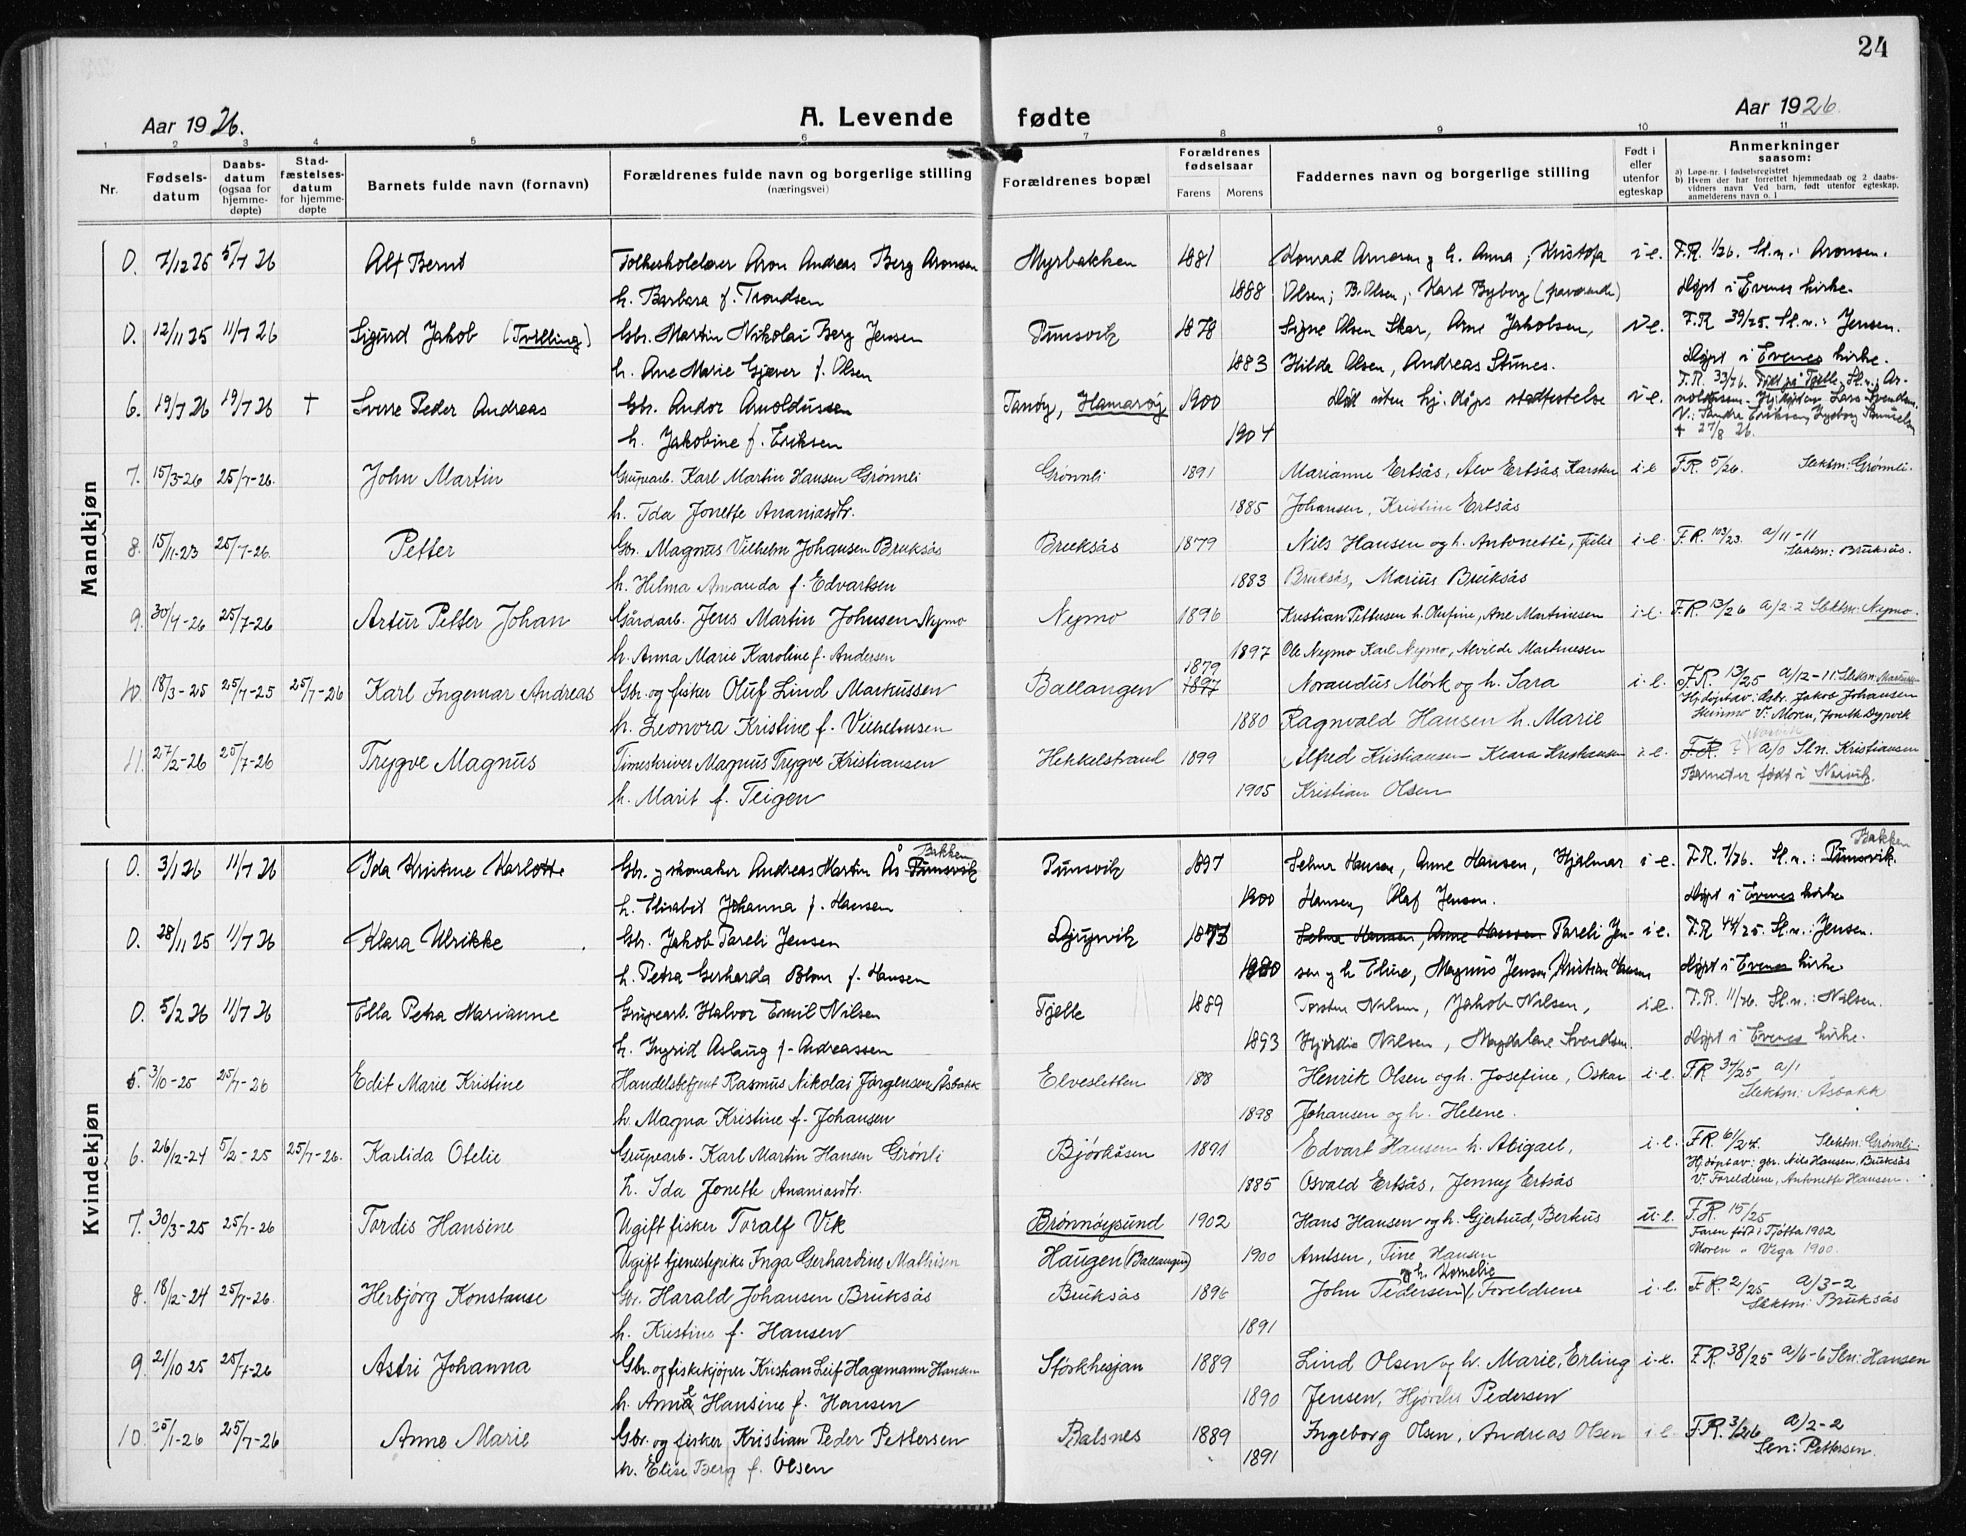 24
Aar 1926.
A. Levende fødte
Aar 1926.
1 2 3 4 5 6 7 8 9 10 11
Nr.
Fødsels-
datum
Daabs-
datum
(ogsaa for
hjemme-
døpte)
Stad-
fæstelses-
datum
for hjemme-
døpte
Barnets fulde navn (fornavn)
Forældrenes fulde navn og borgerlige stilling
(næringsvei)
Forældrenes bopæl
Forældrenes
fødselsaar
Farens Morens
Faddernes navn og borgerlige stilling
Født i
eller
utenfor
egteskap
Anmerkninger
saasom:
a) Løpe-nr. i fødselsregistret
b) Hvem der har forrettet hjemmedaab og 2 daabs-
vidners navn Ved barn, født utenfor egteskap,
anmelderens navn o. l
Mandkjøn
0. 7/12 25 5/7 26 Alf Bernt Folkeskolelærer Aron Andreas Berg Aronsen Myrbakken 1881 Konrad Arnesen og h. Anna; Kristofa i e. F.R. 1/26. Sl.n.: Aronsen.
h. Barbara f. Trondsen 1888 Olsen; B. Olsen; Karl Byberg Døpt i Evenes kirke.
0. 12/11 25 11/7 26 Sigurd Jakob (Tvilling) Gbr. Martin Nikolai Berg Jensen Pumsvik 1878 Signe Olsen Skar, Arne Jakobsen, i e. F.R 39/25. Sl.n.: Jensen.
h. Ane Marie Gjæver f. Olsen 1883 Hilda Olsen, Andreas Stunes. Døpt i Evenes kirke.
6. 19/7 26 19/7 26 † Sverre Peder Andreas Gbr. Andor Arnoldussen Tanøy, Hamarøy 1900 Død uten hj. døps stadfestelse i e. F.R. 33/26. Født på Fjelle. Sl.n.: Ar-
noldussen. Hj.døpt av Lars Svendsen.
h. Jakobine f. Eriksen 1904 V: Sandra Eriksen, Ingeborg
† 27/8 26.
7. 15/3-26 25/7-26. John Martin Grupearb. Karl Martin Hansen Grønnli Grønnli 1891 Marianne Ertsås, Alv Ertsås, Karsten i e F.R. 5/26. Slektsn: Grønnli.
h. Ida Jonette Ananiasdtr. 1885 Johansen, Kristine Ertsås
8. 15/11-23 25/7-26. Petter Gbr. Magnus Vilhelm Johansen Bruksås Bruksås 1879 Nils Hansen og h. Antonette, i e. F.R. 103/23. a/11-11
Slektsn: Bruksås.
h. Hilma Amanda f. Edvartsen 1883 Bruksås, Marius Bruksås
9. 30/4-26 25/7-26 Artur Petter Johan Gårdarb. Jens Martin Johnsen Nymo Nymo 1896 Kristian Pettersen h. Olufine, Ane Martinesen i e. F.R. 13/26 a/2-2 Slektsn: Nymo.
h. Anna Marie Karoline f. Andersen 1897 Ole Nymo Karl Nymo, Alvilde Martinesen
10. 18/3-25 25/7-25 25/7-26 Karl Ingemar Andreas Gbr. og fisker Oluf Lind Markussen Ballangen 1879 1877 Norandus Mørk og h. Sara i. e. F.R. 13/25 a/12-11. Slektsn: Markussen
Hj.døpt av: Gbr. Jakob Johansen
h. Leonora Kristine f. Vilhelmsen 1880 Ragnvald Hansen h. Marie V: Moren, Jonette Dyrvik
11. 27/2-26 25/7-26 Trygve Magnus Timeskriver Magnus Trygve Kristiansen Hekkelstrand 1899 Alfred Kristiansen Klara Kristiansen i e. F.R. Narvik a/0 Sln. Kristiansen
h. Marit f. Teigen 1905 Kristian Olsen Barnet er født i Narvik.
Kvindekjøn
0. 3/1 26 11/7 26 Ida Kristine Karlotte Gbr. og skomaker Andreas Martin Ås Pumsvik Bakken Pumsvik 1897 Selma Hansen, Anne Hansen, Hjalmar i e. F.R. 7/26. Sl.n.: Pumsvik. Bakken
h. Elisabet Johanna f. Hansen 1900 Hansen, Olaf Jensen. Døpt i Evenes kirke
0. 28/11 25 11/7 26 Klara Ulrikke Gbr. Jakob Pareli Jensen Djupvik 1873 Selma Hansen, Anne Hansen Pareli Jen- i e. F.R 44/25. Sl.n.: Jensen.
h. Petra Gerharda Blom f. Hansen 1880 sen og h Eline, Magnus Jensen, Kristian Hansen Døpt i Evenes kirke
0. 5/2 26 11/7 26 Ella Petra Marianne Grupearb. Halvor Emil Nilsen Fjelle 1889 Torsten Nilsen, Jakob Nilsen, i e. F.R. 11/26. Sl.n.: Nilsen.
h. Ingrid Aslaug f. Andreassen 1893 Hjørdis Nilsen, Magdalene Svendsen. Døpt i Evenes kirke.
5. 3/10-25 25/7-26 Edit Marie Kristine Handelsbetjent Rasmus Nikolai Jørgensen Åsbakk Elvesletten 188 Henrik Olsen og h. Josefine, Oskar i. e. F.R. 34/25 a/1
Slektsn: Åsbakk
h. Magna Kristine f. Johansen 1898 Johansen og h. Helene.
6. 26/12-24 5/2-25 25/7-26. Karlida Otelie Grupearb. Karl Martin Hansen Grønli Bjørkåsen 1891 Edvart Hansen h. Abigael, i. e. F.R. 61/24. Slektsn: Grønnli
Hj.døpt av: gbr. Nils Hansen, Bruksås
h. Ida Jonette Ananiasdtr. 1885 Osvald Ertsås, Jenny Ertsås V: Foreldrene, Antonette Hansen.
7. 30/3-25 25/7-26 Tordis Hansine Ugift fisker Toralf Vik Brønnøysund 1902 Hans Hansen og h. Gjertrud, Berkus u. e. F.R. 15/25
Faren født i Tjøtta 1902
Ugift tjenestepike Inga Gerhardine Mathisen Haugen (Ballangen) 1900 Arntsen, Tine Hansen Moren " Vega 1900.
8. 18/12-24 25/7-26. Herbjørg Konstanse Gbr. Harald Johansen Bruksås Bruksås 1896 John Pedersen og h. Kornelie, Foreldrene i. e. F.R. 2/25 a/3-2
Slektsn: Bruksås
h. Kristine f. Hansen 1891
9. 21/10 25 25/7-26 Astri Johanna Gbr. og fiskekjøper Kristian Leif Hagemann Hansen Størkhesjan 1889 Lind Olsen og h. Marie, Erling i. e. F.R. 38/25 a/6-6 Sln: Hansen
h. Anna Hansine f. Hansen 1890 Jensen, Hjørdis Pedersen
10. 25/1-26 25/7-26 Anne Marie Gbr. og fisker Kristian Peder Pettersen Balsnes 1889 Ingeborg Olsen, Andreas Olsen i e. F.R. 3/26 a/2-2
Sln: Pettersen.
h. Elise Berg f. Olsen 1891